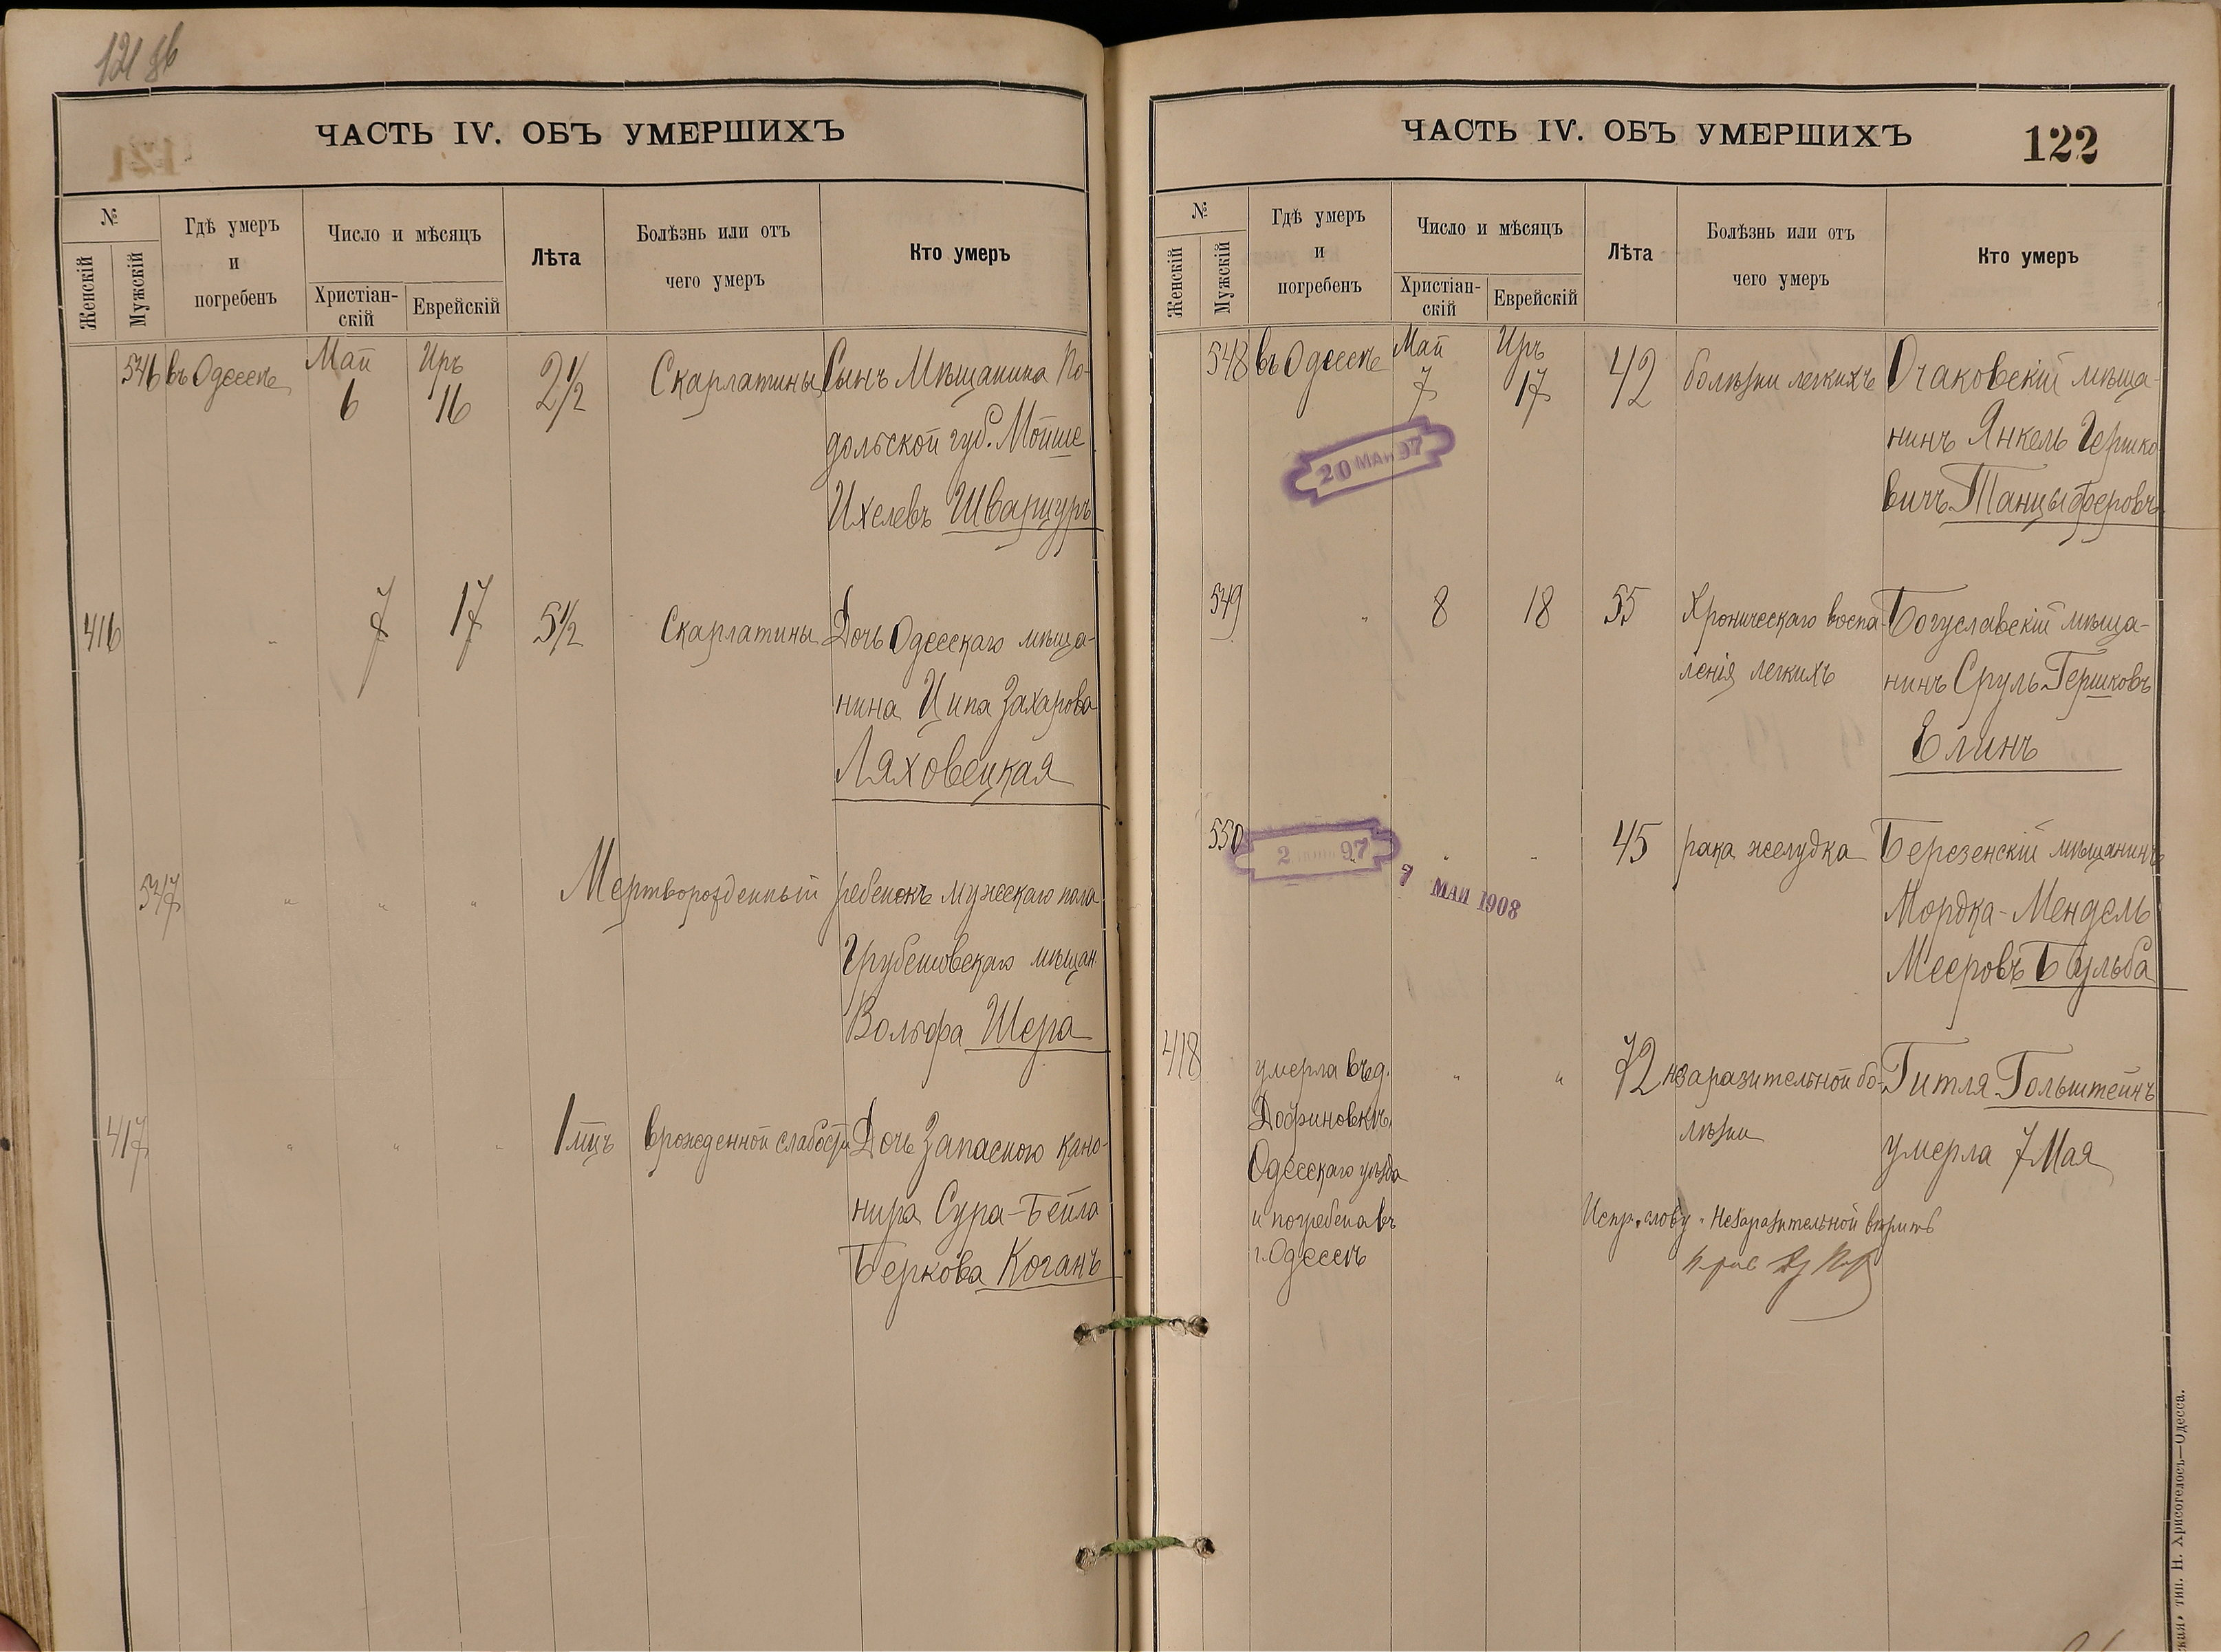 121 об
ЧАСТЬ IV. ОБЪ УМЕРШИХЪ
№
Женскій
Мужскій
Гдѣ умеръ
и
погребенъ
Число и мѣсяцъ
Христіан-
скій
Еврейскій
Лѣта
Болѣзнь или отъ
чего умеръ
Кто умеръ
546 въ Одессѣ Май 6 Иръ 16 2½ Скарлатины Сынъ Мѣщанина По-
дольской губ. Мойше
Ихелевъ Шварцуръ
416 " 7 17 5½ Скарлатины Дочь Одесскаго мѣща-
нина Ципа Захарова
Ляховецкая
547 " " " Мертворожденный ребенокъ мужескаго пола
Грубешовскаго мѣщан.
Вольфа Шера
417 " " " 1 мцъ врожденной слабости Дочь Запасного кано-
нира Сура-Бейла
Беркова Коганъ
ЧАСТЬ IV. ОБЪ УМЕРШИХЪ
122
№
Женскій
Мужскій
Гдѣ умеръ
и
погребенъ
Число и мѣсяцъ
Христіан-
скій
Еврейскій
Лѣта
Болѣзнь или отъ
чего умеръ
Кто умеръ
548 въ Одессѣ Май 7 Иръ 17 42 болѣзни легкихъ Очаковскій мѣща-
нинъ Янкель Гершко-
вичъ Танцыферовъ
20 МАЙ 97
549 " 8 18 55 Хроническаго воспа- Богуславскій мѣща-
ленія легкихъ нинъ Сруль Гершковъ
Елинъ
550 " " " 45 рака желудка Березенскій мѣщанинъ
2 97
7 МАЙ 1908
Мордка-Мендель
Мееровъ Бульба
418 умерла въ д. " " 72 незаразительной бо- Гитля Гольштейнъ
Добриновкѣ лѣзни умерла 7 Мая
Одесскаго уѣзда
и погребена въ
г. Одессѣ
Испр. слову "Незаразительной вѣрить
тип. Н. Хрисогелосъ—Одесса.